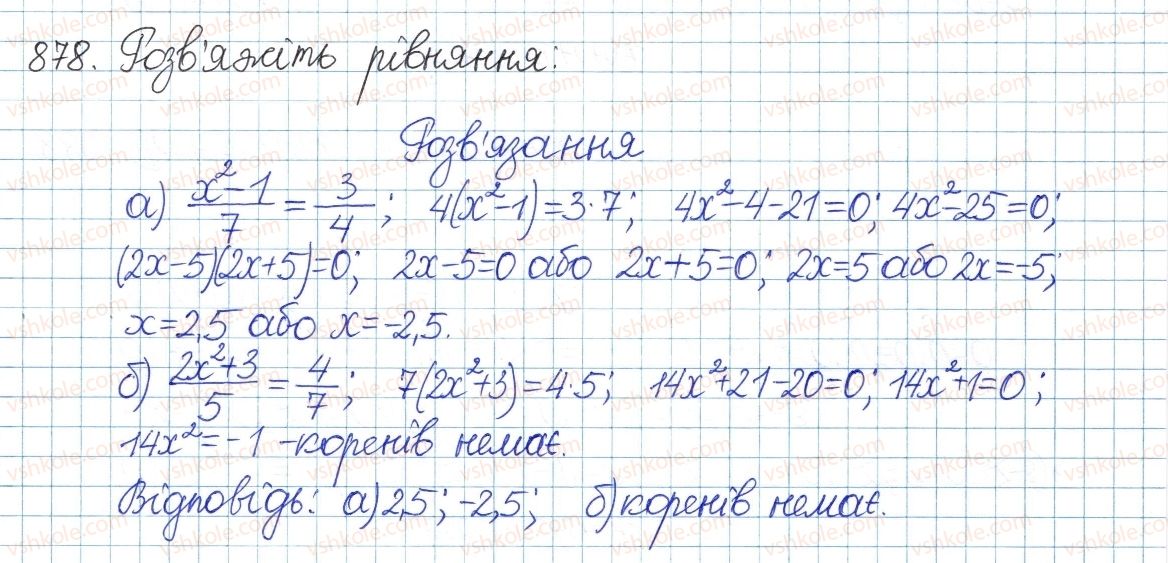 878. Розв'яжіть рівняння:
Розв'язання
а) (x²-1)/7 = 3/4; 4(x²-1)=3·7; 4x²-4-21=0; 4x²-25=0;
(2x-5)(2x+5)=0; 2x-5=0 або 2x+5=0; 2x=5 або 2x=-5;
x=2,5 або x=-2,5.
б) (2x²+3)/5 = 4/7; 7(2x²+3)=4·5; 14x²+21-20=0; 14x²+1=0;
14x²=-1 - коренів немає.
Відповідь: а) 2,5; -2,5; б) коренів немає.